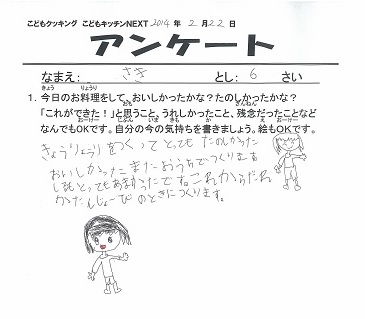 こどもクッキング こどもキッチンNEXT 2014 年 2 月 22 日
アンケート
なまえ: さき とし: 6 さい
きょう りょうり
1. 今日のお料理をして、おいしかったかな?たのしかったかな?
おも ざんねん
「これができた!」と思うこと、うれしかったこと、残念だったことなど
おーけー じぶん いま きも か え おーけー
なんでもOKです。自分の今の気持ちを書きましょう。絵もOKです。
きょうりょうりをつくってとってもたのしかった
おいしかったまたおうちでつくりまする
しもとってもあまかったですこれからだれ
かたんじょーびのときにつくります。